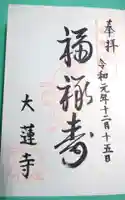 奉拝
令和元年十二月十五日
福禄寿
大蓮寺